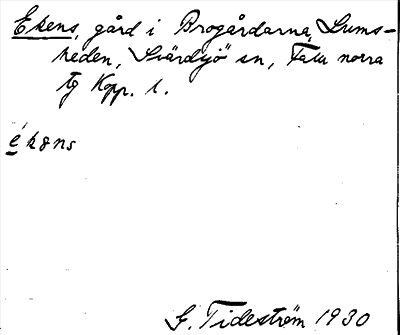 Ekens, gård i Brogårdarna, Lums-
heden, Svärdsjö sn, Falu norra
tg Kopp. l.
ékǝns
G. Tideström 1930